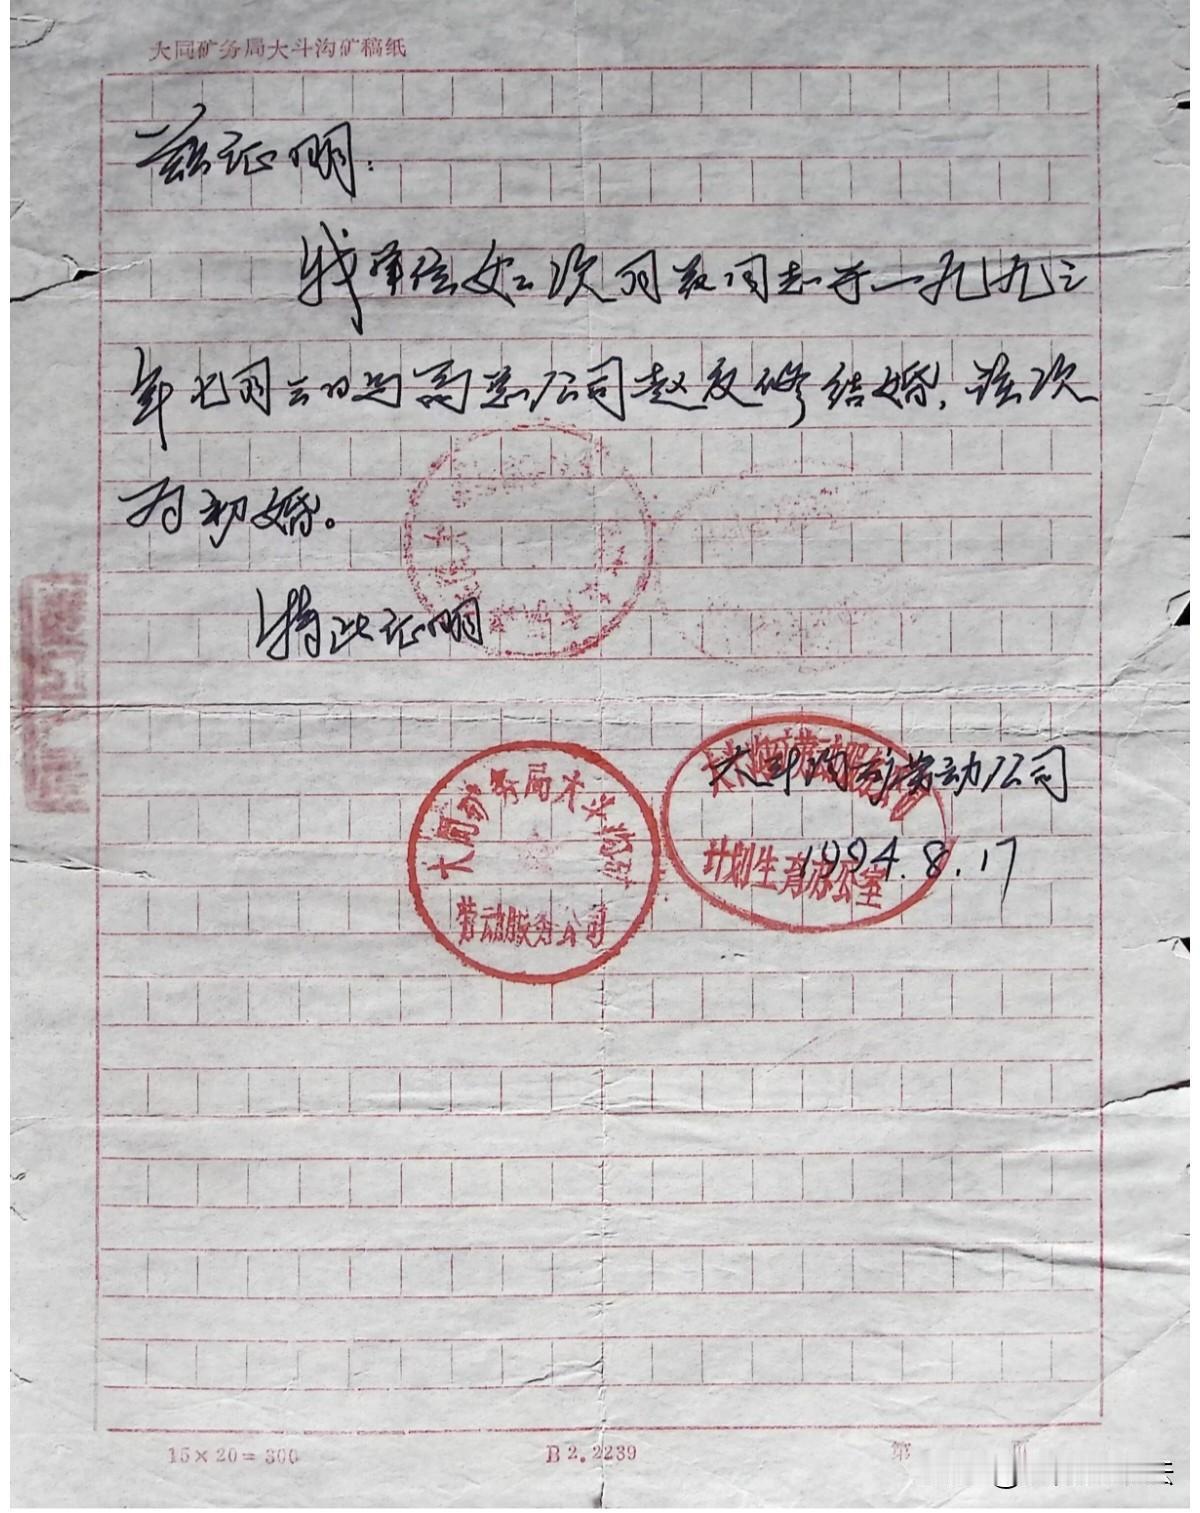 大同矿务局大斗沟矿稿纸
兹证明:
我单位如次同志于一九九三
年七月 日与 总公司赵友修结婚,该次
为初婚。
特此证明
大斗沟矿劳动公司
1994.8.17
大同矿务局大斗沟矿
劳动服务公司
大斗沟矿劳动服务公司
计划生育办公室
15×20=300
B2.2239
第